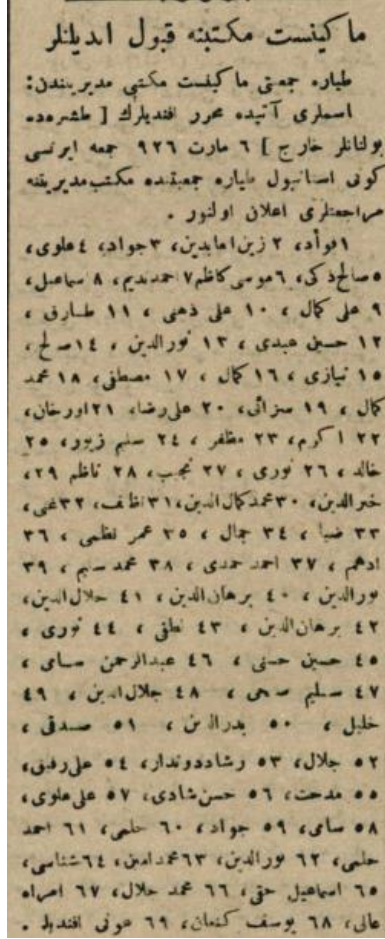 ماكينست مكتبنه قبول ايديلنلر
طياره جمعيتى ماكينست مكتبى مديريتندن:
اسملرى آتيده محرر افنديلرك [ طشره‌ده
بولنانلر خارج ] ٦ مارت ٩٢٦ جمعه ايرتسى
كونى استانبول طياره جمعيتنده مكتب مديريتنه
مراجعتلرى اعلان اولنور .
١ فوأد، ٢ زين العابدين، ٣ جواد، ٤ علوى،
٥ صالح ذكى، ٦ موسى كاظم ٧ احمد نديم، ٨ اسماعيل،
٩ على كمال ، ١٠ على ذهنى ، ١١ طارق ،
١٢ حسين عبدى ، ١٣ نورالدين ، ١٤ صالح ،
١٥ نيازى ، ١٦ كمال ، ١٧ مصطفى، ١٨ محمد
كمال ، ١٩ سزائى، ٢٠ على رضا، ٢١ اورخان،
٢٢ اكرم، ٢٣ مظفر ، ٢٤ سليم زيور، ٢٥
خالد ، ٢٦ نورى ، ٢٧ نجيب، ٢٨ ناظم ٢٩،
خيرالدين، ٣٠ محمد كمال الدين، ٣١ نظيف، ٣٢ غنى،
٣٣ ضيا ، ٣٤ جمال ، ٣٥ عمر نظمى ، ٣٦
ادهم ، ٣٧ احمد حمدى ، ٣٨ محمد سليم ، ٣٩
نورالدين ، ٤٠ برهان الدين ، ٤١ جلال الدين،
٤٢ برهان الدين ، ٤٣ لطفى ، ٤٤ نورى ،
٤٥ حسين حسنى ، ٤٦ عبدالرحمن سامى ،
٤٧ سليم صبحى ، ٤٨ جلال الدين ، ٤٩
خليل ، ٥٠ بدرالدين ، ٥١ صدقى ،
٥٢ جلال، ٥٣ رشاد دوندار، ٥٤ على رفيق،
٥٥ مدحت، ٥٦ حسن شادى، ٥٧ على علوى،
٥٨ سامى، ٥٩ جواد، ٦٠ حلمى، ٦١ احمد
حلمى، ٦٢ نورالدين، ٦٣ محمد امين، ٦٤ شناسى،
٦٥ اسماعيل حقى، ٦٦ محمد جلال، ٦٧ امراه
عالى، ٦٨ يوسف كنعان، ٦٩ عونى افنديلر .